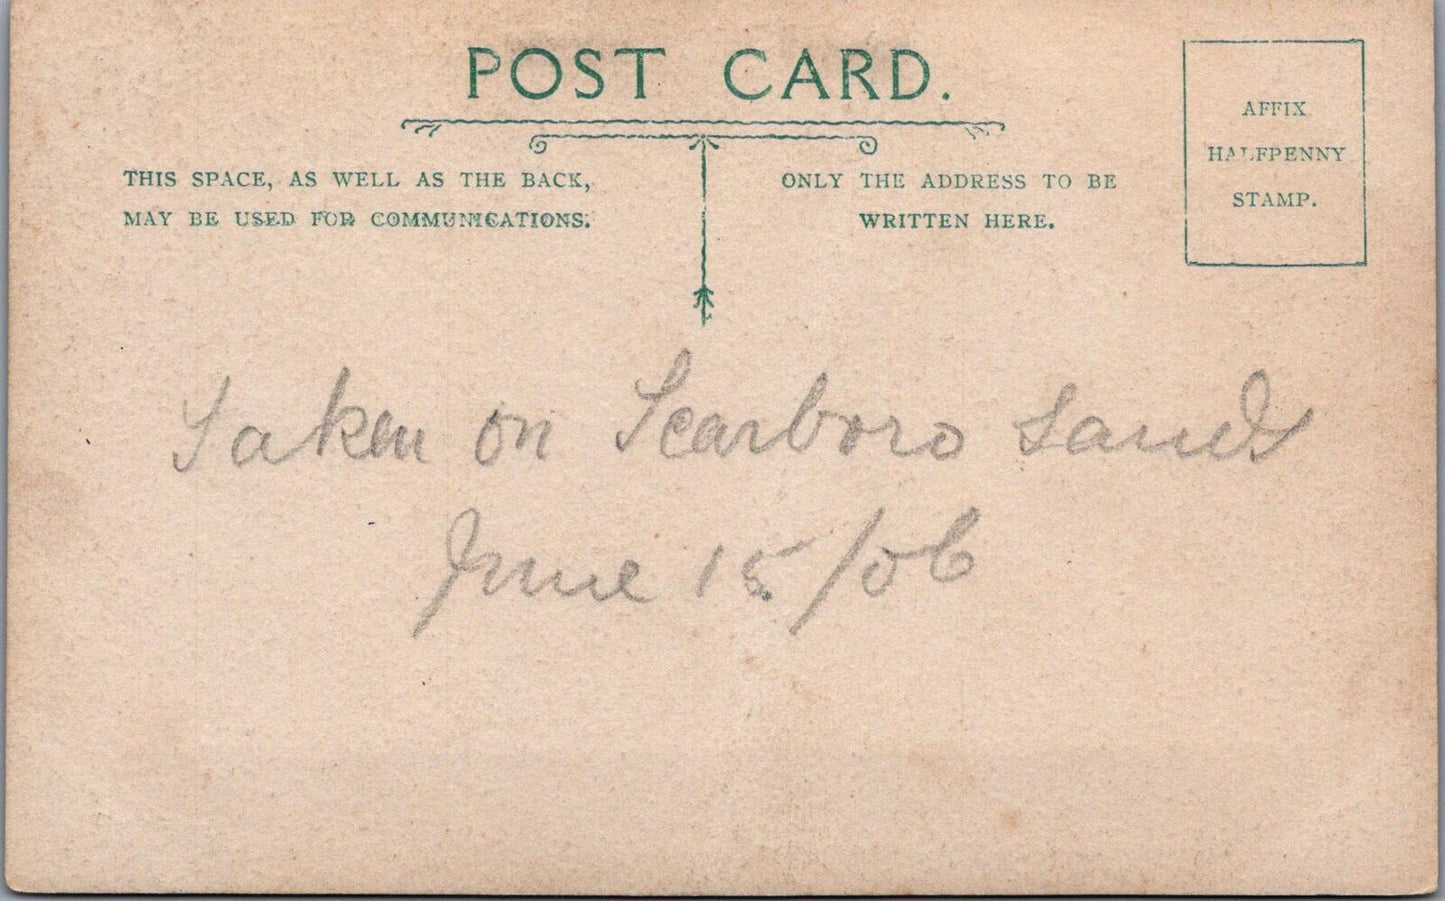 POST CARD.
THIS SPACE, AS WELL AS THE BACK,
MAY BE USED FOR COMMUNICATIONS.
ONLY THE ADDRESS TO BE
WRITTEN HERE.
AFFIX
HALFPENNY
STAMP.
Taken on Scarboro Sands
June 15/06